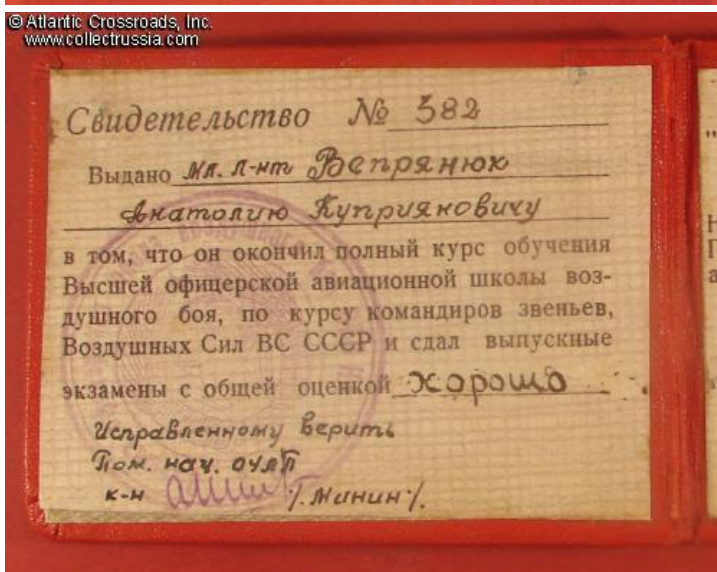 © Atlantic Crossroads, Inc.
www.collectrussia.com
Свидетельство № 382
Выдано мл. л-нт Вепрянюк
Анатолию Куприяновичу
в том, что он окончил полный курс обучения
Высшей офицерской авиационной школы воз-
душного боя, по курсу командиров звеньев,
Воздушных Сил ВС СССР и сдал выпускные
экзамены с общей оценкой хорошо
Исправленному верить
Пом. нач.
к-н /. Минин ./.